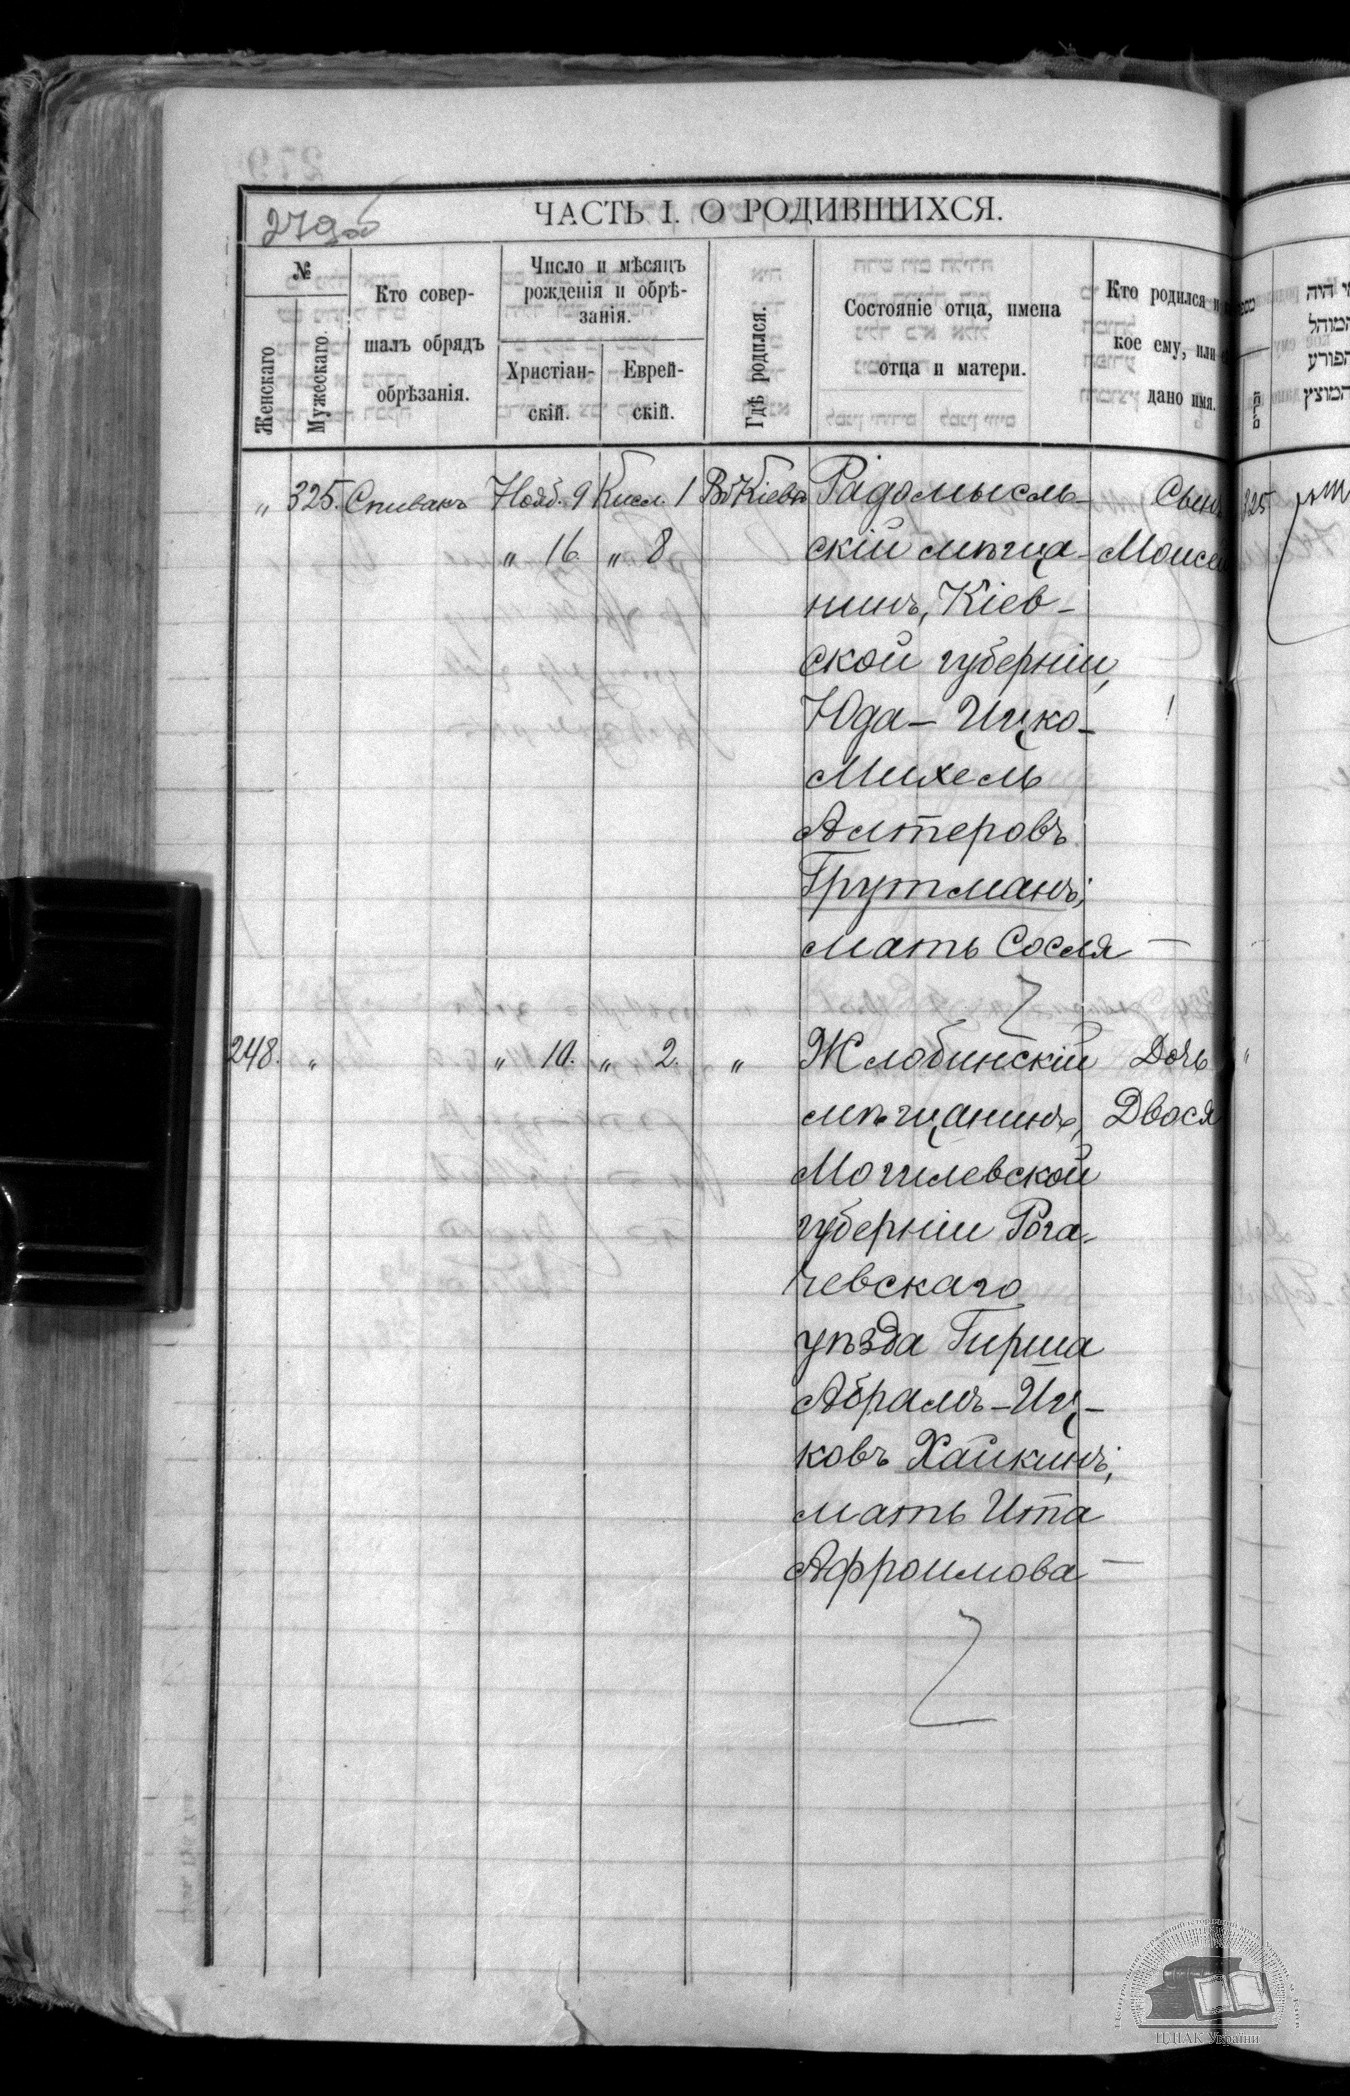 279об
ЧАСТЬ I. О РОДИВШИХСЯ.
№
Женскаго
Мужескаго.
Кто совер-
шалъ обрядъ
обрѣзанія.
Число и мѣсяцъ
рожденія и обрѣ-
занія.
Христіан-
скій.
Еврей-
скій.
Гдѣ родился.
Состояніе отца, имена
отца и матери.
Кто родился и
кое ему, или
дано имя.
היה
המוהל
הפורע
המוצץ
" 325. Спивакъ Нояб. 9 Кисл. 1 Въ Кіевѣ Радомысль- Сынъ 325
" 16. " 8 скій мѣща- Моисей
нинъ, Кіев-
ской губерніи,
Юда - Ицко-
Михель
Алтеровъ
Грутманъ;
мать Сося -
248. " " 10. " 2. " Жлобинскій Дочь "
мѣщанинъ, Двося
Могилевской
губерніи Рога-
чевскаго
уѣзда Гирша
Абрамъ-Иц-
ковъ Хайкинъ;
мать Ита
Афроимова -
ЦДІАК України